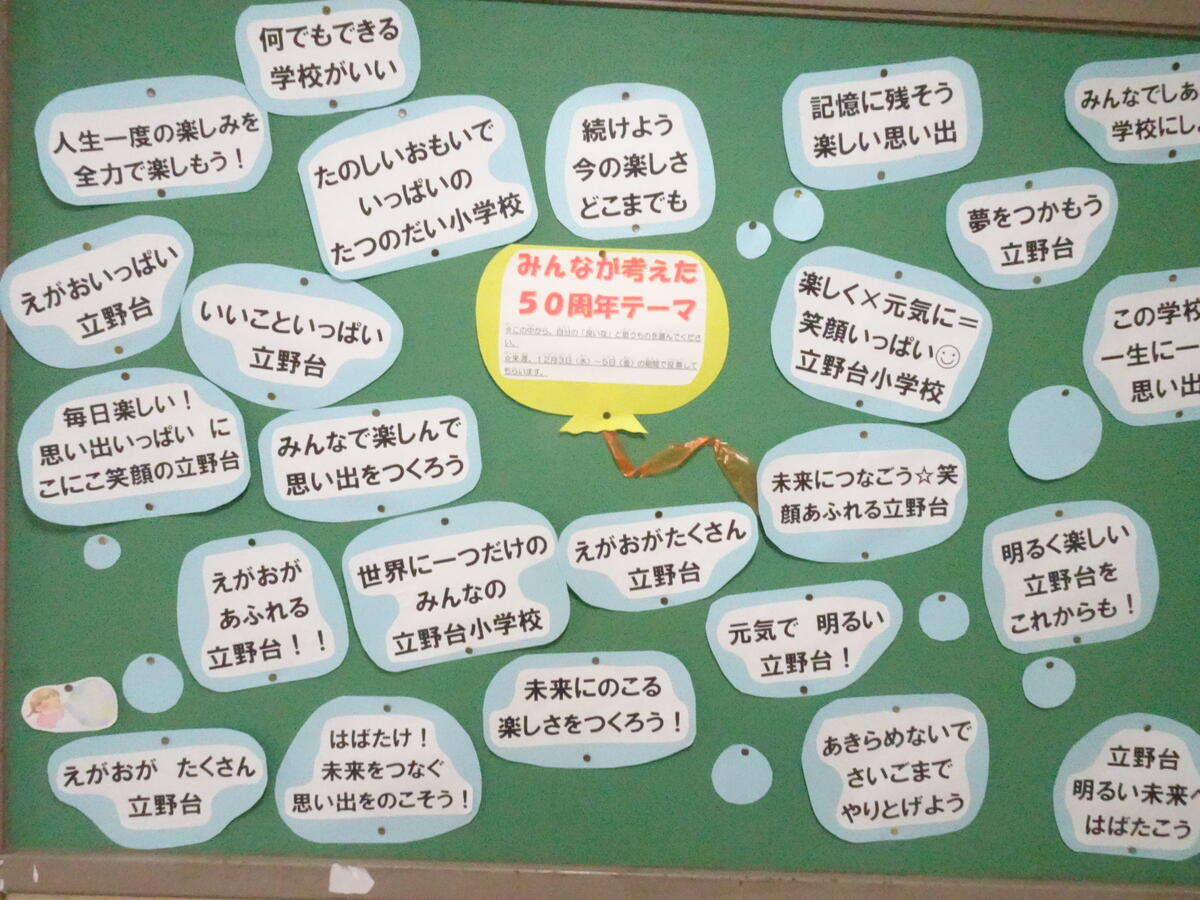 何でもできる
学校がいい
人生一度の楽しみを
全力で楽しもう！
たのしいおもいで
いっぱいの
たつのだい小学校
続けよう
今の楽しさ
どこまでも
記憶に残そう
楽しい思い出
みんなでしあ
学校にし
夢をつかもう
立野台
えがおいっぱい
立野台
いいこといっぱい
立野台
みんなが考えた
５０周年テーマ
※この中から、自分の「良いな」と思うものを選んでくださ
い。
☆来週、１２月３日（水）～５日（金）の期間で投票して
もらいます。
楽しく×元気に＝
笑顔いっぱい☺
立野台小学校
この学校
一生に一
思い出
毎日楽しい！
思い出いっぱい に
こにこ笑顔の立野台
みんなで楽しんで
思い出をつくろう
未来につなごう☆笑
顔あふれる立野台
えがおが
あふれる
立野台！！
世界に一つだけの
みんなの
立野台小学校
えがおがたくさん
立野台
元気で 明るい
立野台！
明るく楽しい
立野台を
これからも！
えがおが たくさん
立野台
はばたけ！
未来をつなぐ
思い出をのこそう！
未来にのこる
楽しさをつくろう！
あきらめないで
さいごまで
やりとげよう
立野台
明るい未来へ
はばたこう